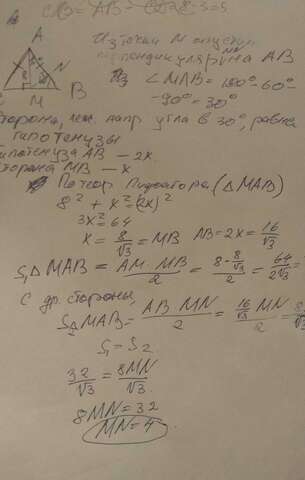 A
Из точки M опустим
перпендикуляр MN на AB
∠MAB = 180° - 60° -
- 90° = 30°
N
C M B
Сторона, леж. напр угла в 30°, равна
гипотенузы
Гипотенуза AB - 2x
Сторона MB - x
По теор Пифагора (△MAB)
8² + x² = (2x)²
3x² = 64
x = 8/√3 = MB AB = 2x = 16/√3
S₁△MAB = AM · MB / 2 = 8 · 8/√3 / 2 = 64 / 2√3 =
С др. стороны,
S₂△MAB = AB MN / 2 = 16/√3 MN / 2 =
S₁ = S₂
32/√3 = 8MN/√3
8MN = 32
MN = 4